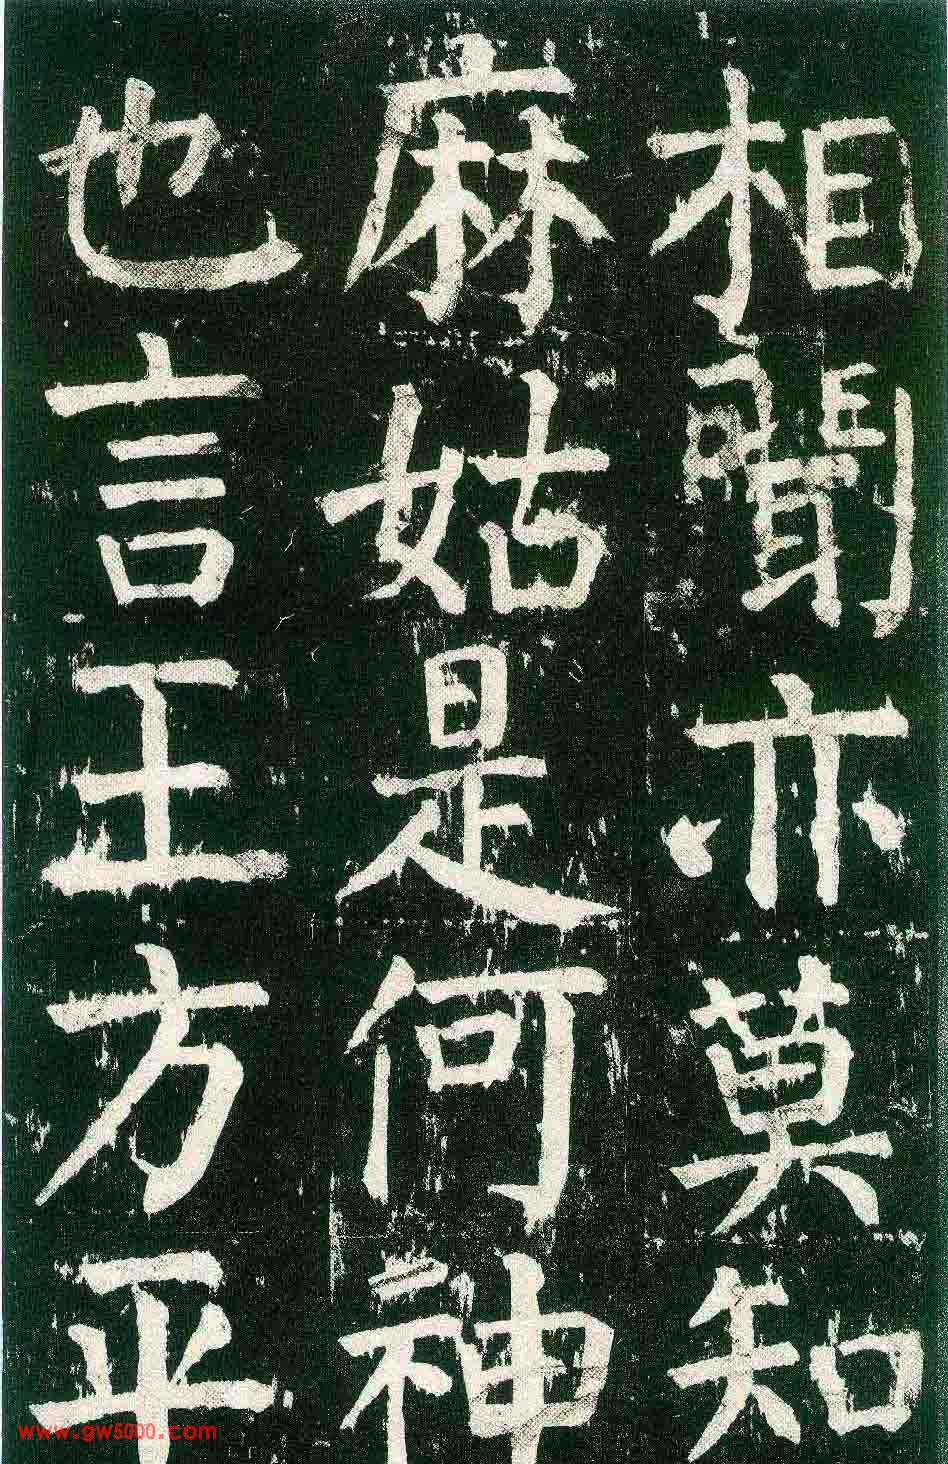 相聞亦莫知
麻姑是何神
也言王方平
www.gw5000.com